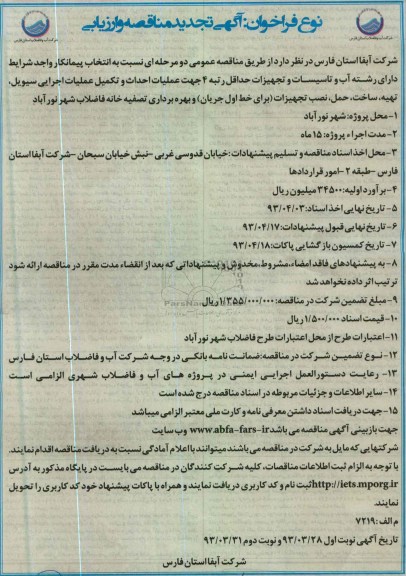 نوع فراخوان: آگهی تجدید مناقصه و ارزیابی
شرکت آبفا استان فارس در نظر دارد از طریق مناقصه عمومی دو مرحله ای نسبت به انتخاب پیمانکار واجد شرایط
دارای رشته آب و تاسیسات و تجهیزات حداقل رتبه ۴ جهت عملیات احداث و تکمیل عملیات اجرایی سیویل،
تهیه، ساخت، حمل، نصب تجهیزات (برای خط اول جریان) و بهره برداری تصفیه خانه فاضلاب شهر نورآباد
۱- محل پروژه: شهر نورآباد
۲- مدت اجراء پروژه: ۱۵ ماه
۳- محل اخذ اسناد مناقصه و تسلیم پیشنهادات: خیابان قدوسی غربی - نبش خیابان سبحان - شرکت آبفا استان
فارس - طبقه ۲ - امور قراردادها
۴- برآورد اولیه: ۳۴۵۰۰ میلیون ریال
۵- تاریخ نهایی اخذ اسناد: ۹۳/۰۴/۰۳
۶- تاریخ نهایی قبول پیشنهادات: ۹۳/۰۴/۱۷
۷- تاریخ کمسیون بازگشایی پاکات: ۹۳/۰۴/۱۸
۸- به پیشنهادهای فاقد امضاء، مشروط، مخدوش و پیشنهاداتی که بعد از انقضاء مدت مقرر در مناقصه ارائه شود
ترتیب اثر داده نخواهد شد
۹- مبلغ تضمین شرکت در مناقصه: ۱/۳۵۵/۰۰۰/۰۰۰ ریال
۱۰- قیمت اسناد ۱/۵۰۰/۰۰۰ ریال
۱۱- اعتبارات طرح از محل اعتبارات طرح فاضلاب شهر نورآباد
۱۲- نوع تضمین شرکت در مناقصه: ضمانت نامه بانکی در وجه شرکت آب و فاضلاب استان فارس
۱۳- رعایت دستورالعمل اجرایی ایمنی در پروژه های آب و فاضلاب شهری الزامی است
۱۴- سایر اطلاعات و جزئیات مربوطه در اسناد مناقصه درج شده است
۱۵- جهت دریافت اسناد داشتن معرفی نامه و کارت ملی معتبر الزامی میباشد
جهت بازبینی آگهی مناقصه می باشد www.abfa-fars-ir وب سایت
شرکتهایی که مایل به شرکت در مناقصه می باشند میتوانند با اعلام آمادگی نسبت به دریافت مناقصه اقدام نمایند.
با توجه به الزام ثبت اطلاعات مناقصات، کلیه شرکت کنندگان در مناقصه می بایست در پایگاه مذکور به آدرس
http://iets.mporg.ir ثبت نام و کد کاربری دریافت نمایند و همراه با پاکات پیشنهاد خود کد کاربری را تحویل
نمایند.
م الف: ۷۲۱۹
تاریخ آگهی نوبت اول ۹۳/۰۳/۲۸ و نوبت دوم ۹۳/۰۳/۳۱
شرکت آبفا استان فارس